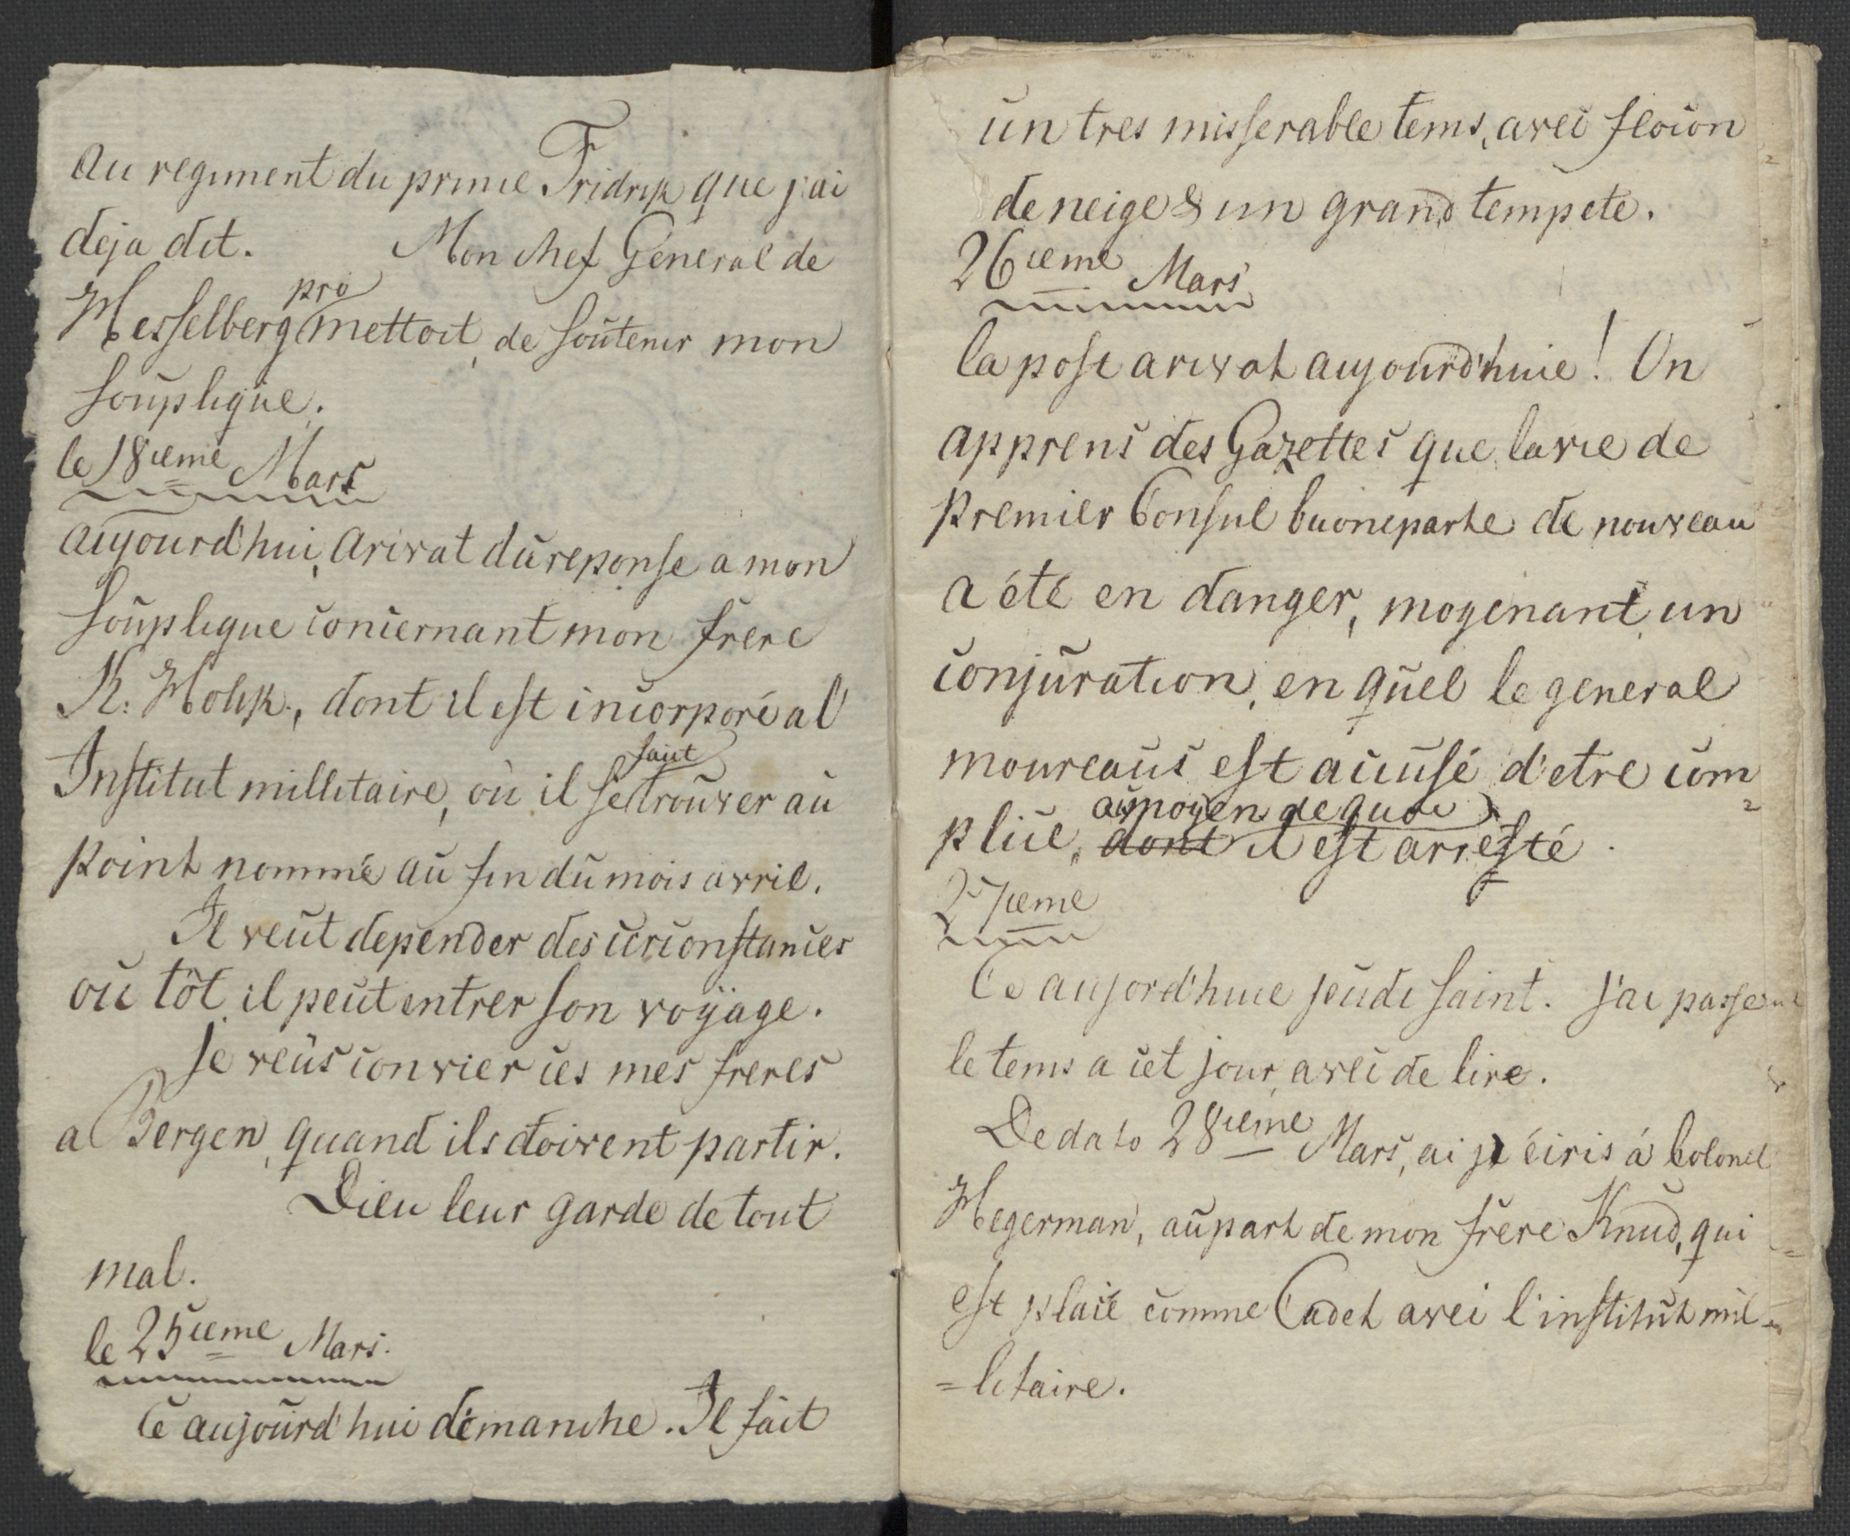 au regiment du prince Fridrik que j'ai
deja dit. Mon chef General de
pro
Hesselberg mettoit, de soutenir mon
souplique.
le 18ieme Mars
aujourd'hui, arivat du reponse a mon
souplique concernant mon frere
K. Holck, dont il est incorporé al'
saut
Institut millitaire, où il se trouver au
point nommé au fin du mois avril.
Il veut depender des circonstances
ou tôt il peut entrer son voÿage.
Je veus convier ces mes freres
a Bergen, quand ils doivent partir.
Dieu leur garde de tout
mal.
le 25ieme Mars.
Ce aujourd'hui dimanche. Il fait
un tres misserable tems, avec flocon
de neige & un grand tempete.
26ieme Mars
la post arivat aujourd'huie! On
apprens des Gazettes que la vie de
premier Consul buoneparte de nouveau
a été en danger, mogenant un
conjuration, en quel le general
moureaus est accusé d'etre com
au moyen de quoi
plice, dont il est arresté.
27ieme
Ce aujord'huie jeudi saint. J'ai passe
le tems a cet jour, avec de lire.
Dedato 28ieme Mars, ai je écris á Colonel
Hegerman, aupart de mon frere Knud, qui
est placé comme Cadet avec l'institut mil-
=litaire.